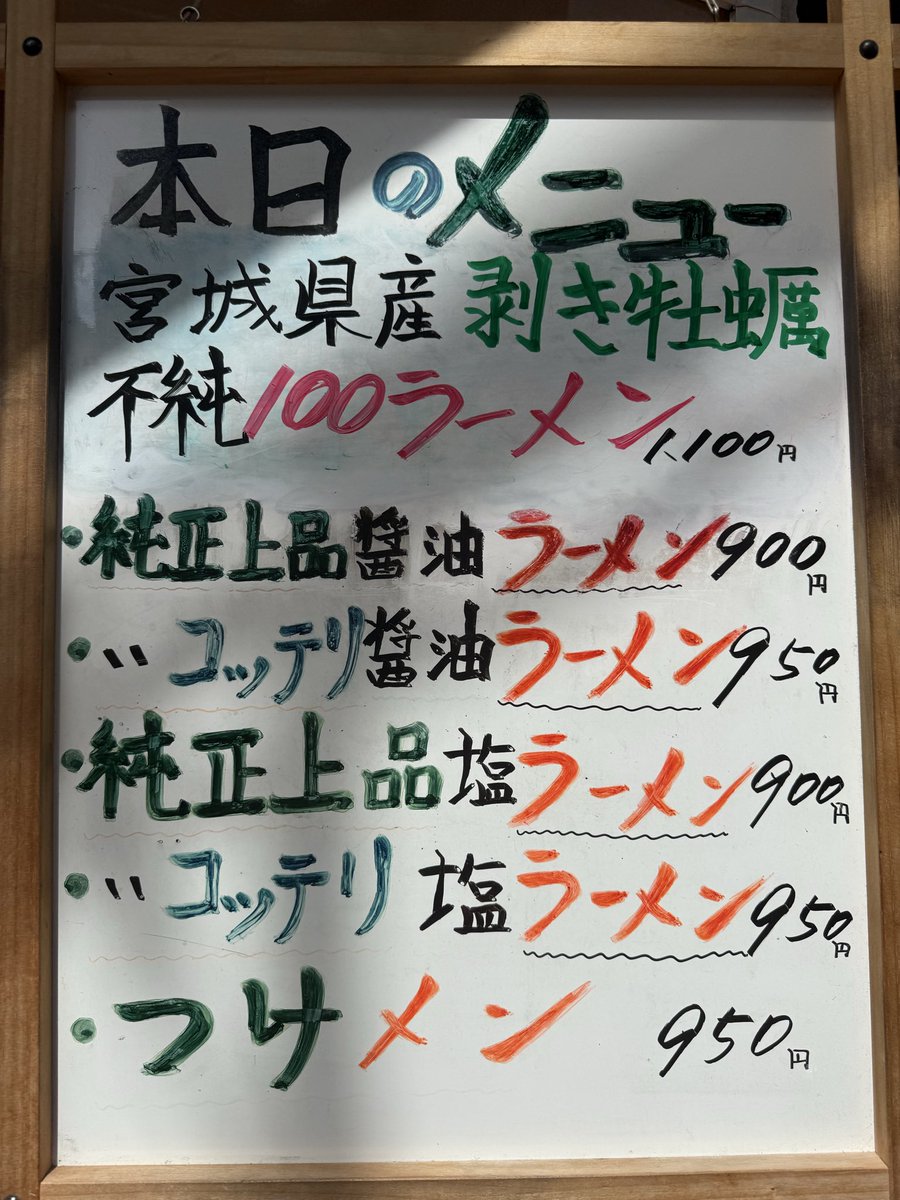 本日のメニュー
宮城県産 剥き牡蠣
不純100ラーメン 1,100円
・純正上品醤油ラーメン 900円
・〃 コッテリ醤油ラーメン 950円
・純正上品塩ラーメン 900円
・〃 コッテリ 塩ラーメン 950円
・つけメン 950円